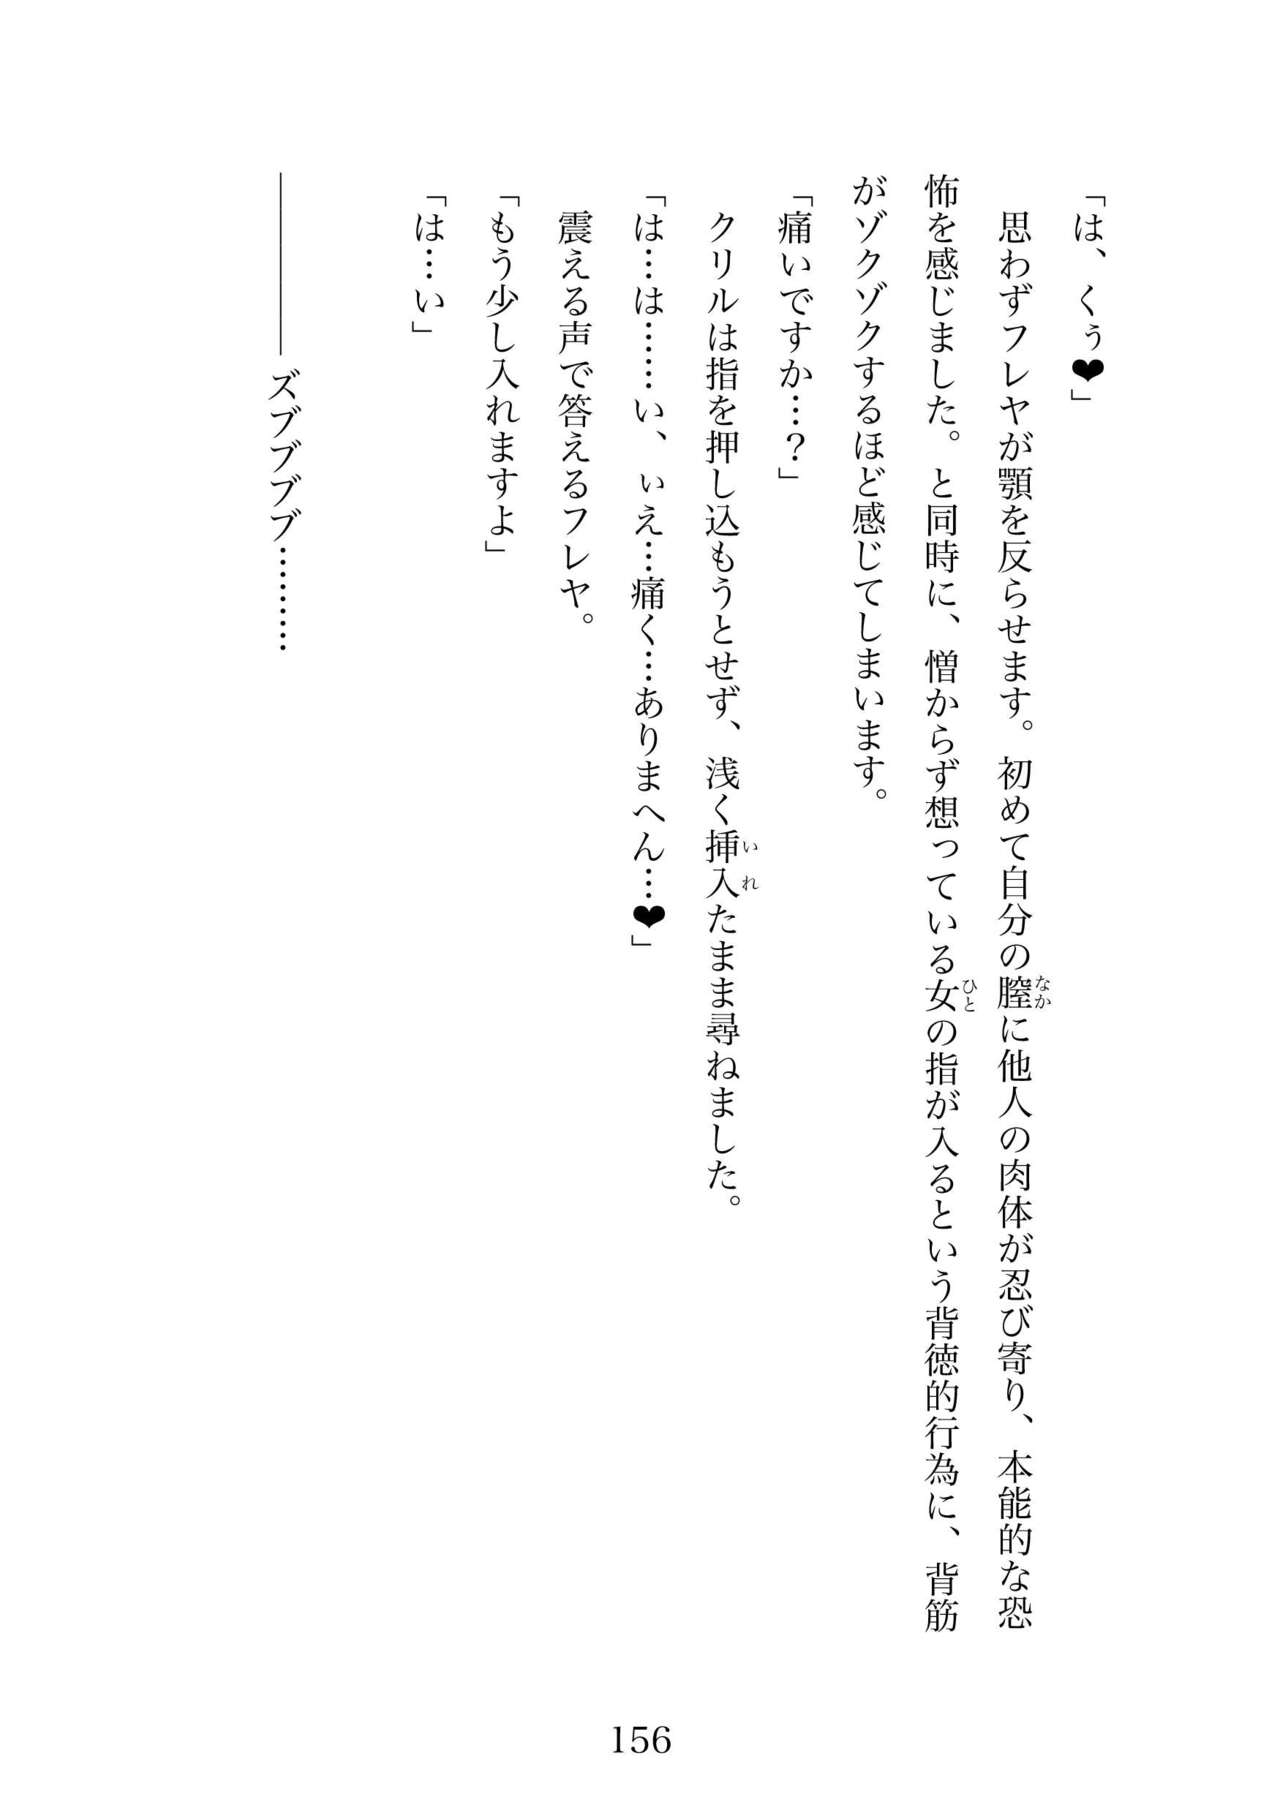 「は、くぅ❤」
思わずフレヤが顎を反らせます。初めて自分の膣に他人の肉体が忍び寄り、本能的な恐
怖を感じました。と同時に、憎からず想っている女の指が入るという背徳的行為に、背筋
がゾクゾクするほど感じてしまいます。
「痛いですか…？」
クリルは指を押し込もうとせず、浅く挿入たまま尋ねました。
「は…は……い、いぇ…痛く…ありまへん…❤」
震える声で答えるフレヤ。
「もう少し入れますよ」
「は…い」
―――――ズブブブブ………
なか
ひと
いれ
156